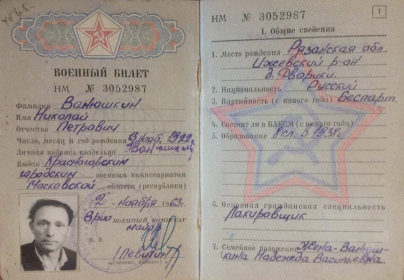 ВОЕННЫЙ БИЛЕТ
НМ № 3052987
Фамилия Ванюшкин
Имя Николай
Отчество Петрович
Число, месяц и год рождения 1922
Личная подпись владельца
Выдан Красногорским
городским военным комиссариатом
Московской области (республики)
"2" ноября 1963 г.
Врио военный комиссар
майор
Левитин
НМ № 3052987
1
I. Общие сведения
1. Место рождения Рязанская обл.
Ижевский р-он
д.
2. Национальность Русский
3. Партийность (с какого года) Беспарт.
4. Состоит ли в ВЛКСМ (с какого года)
5. Образование
6. Основная гражданская специальность
Лакировщик
7. Семейное положение Жена-Ванюш-
кина Надежда Васильевна